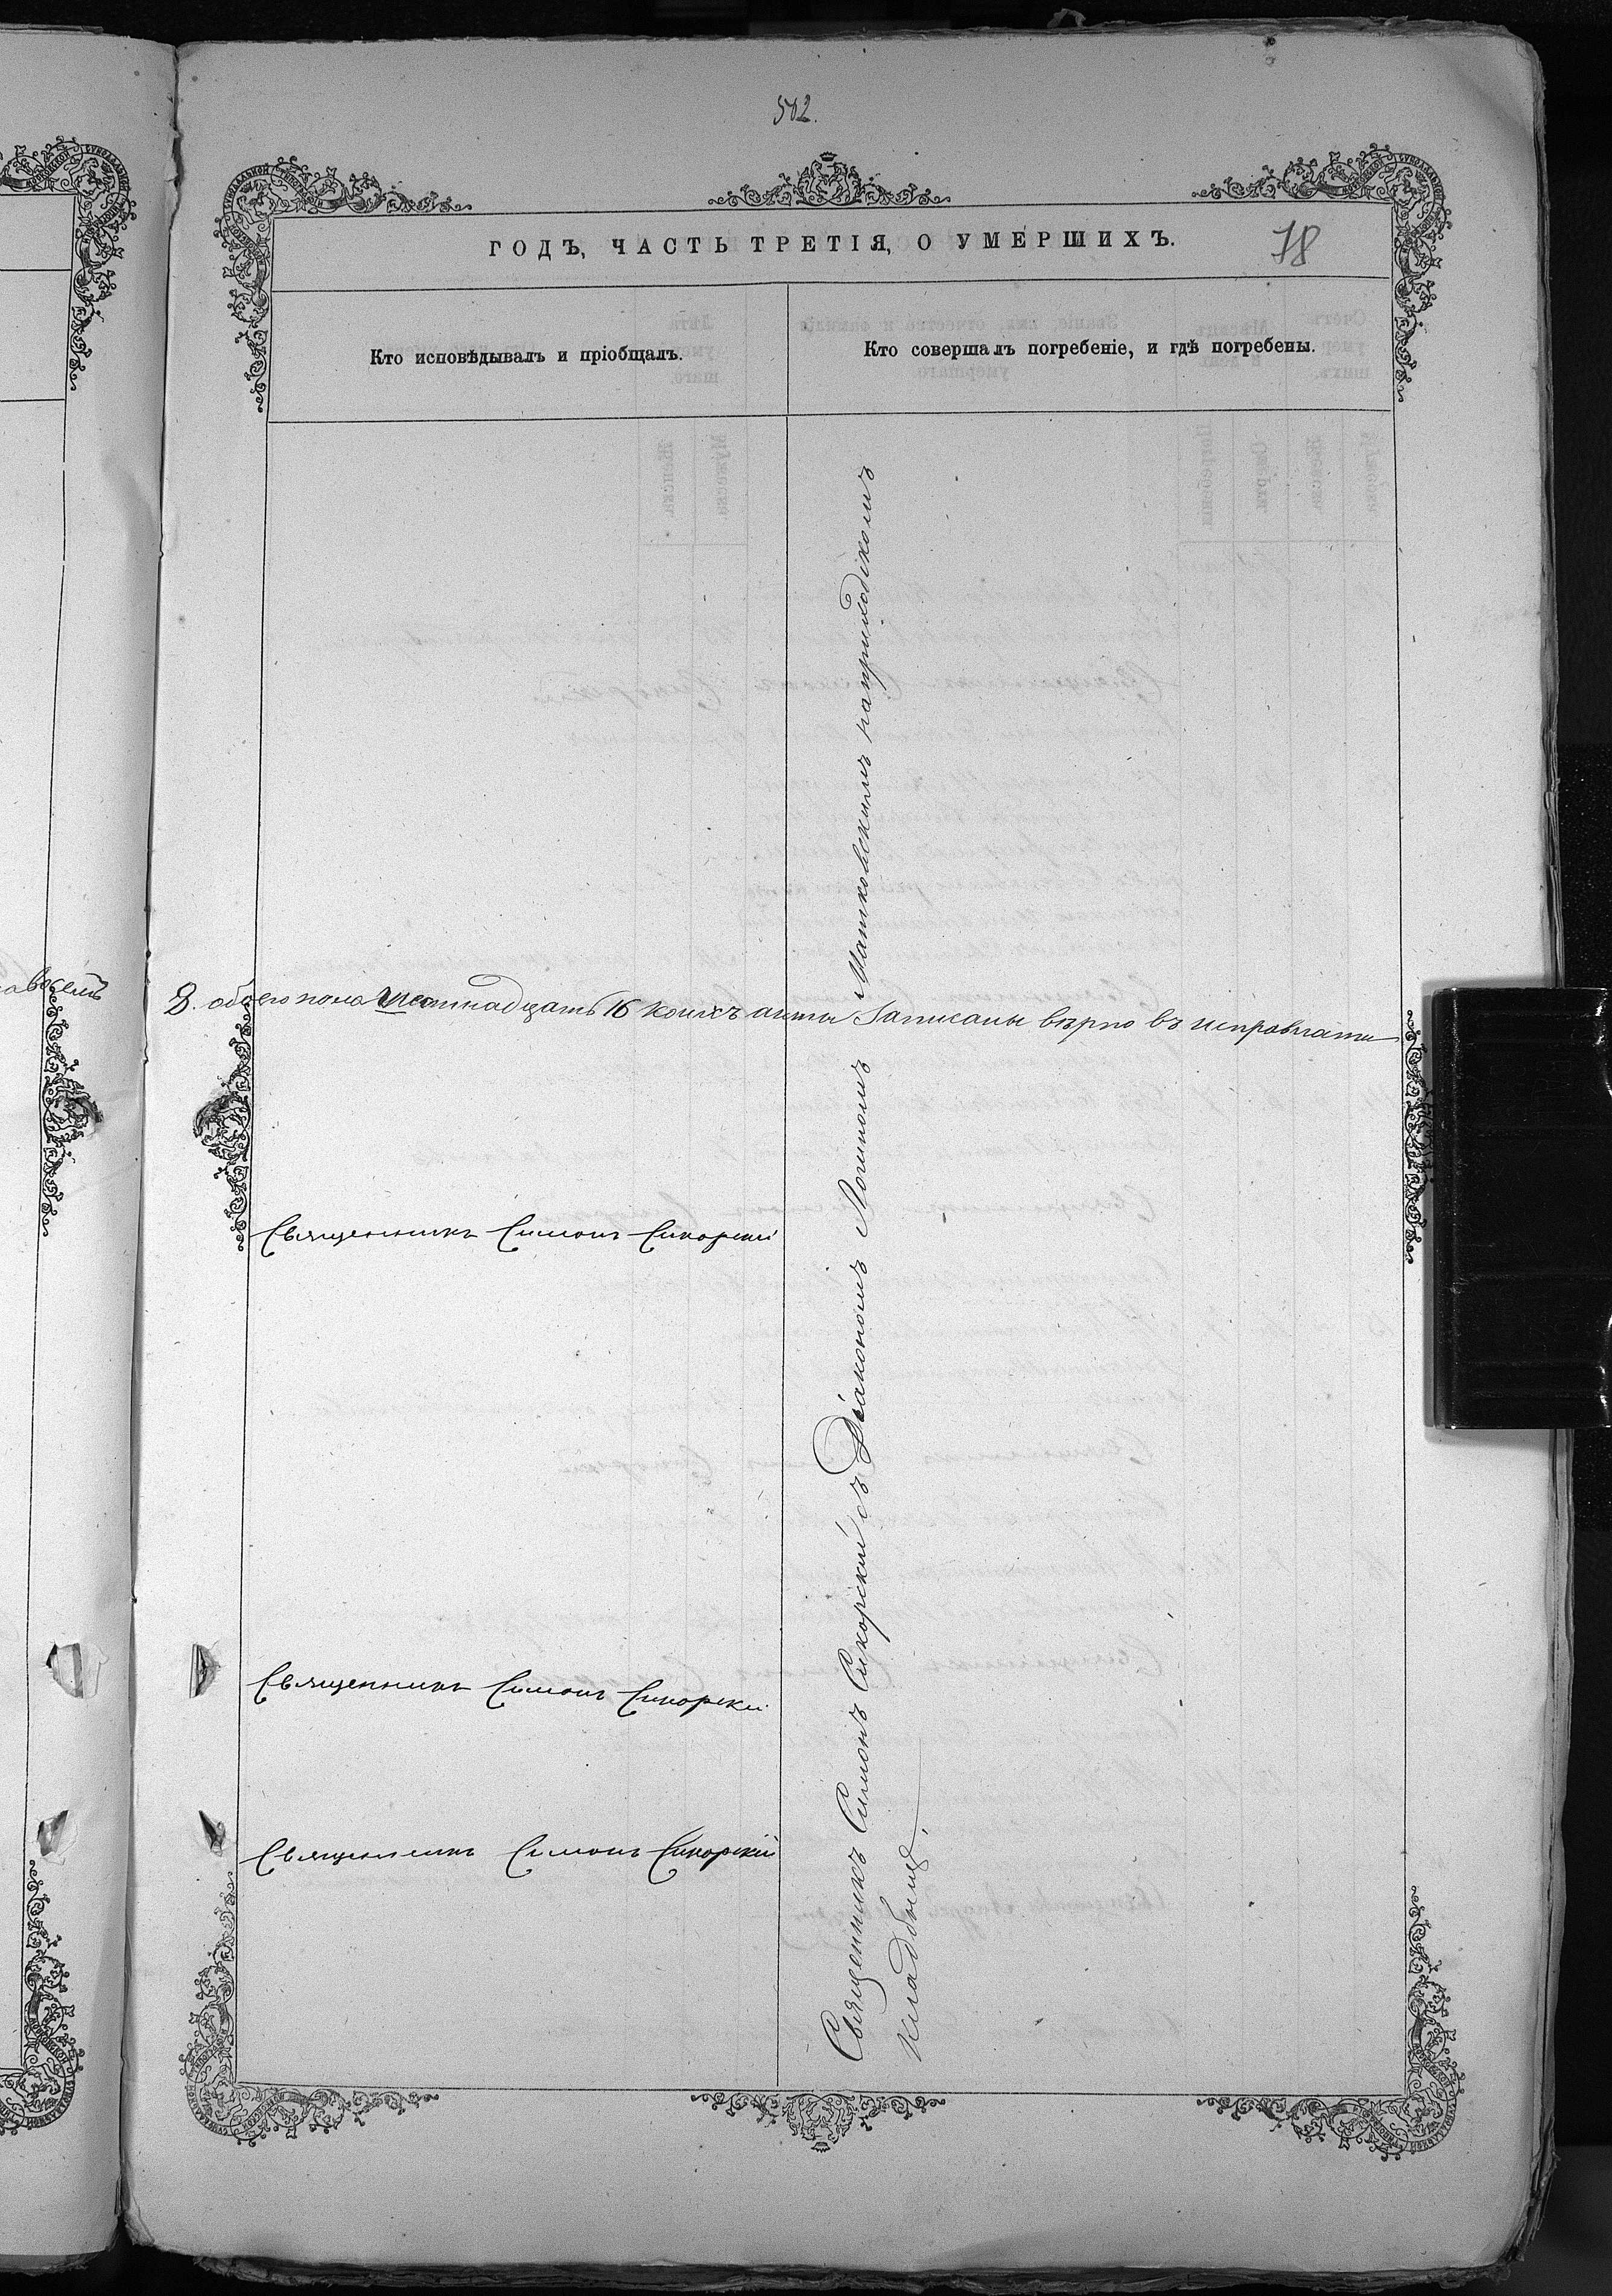 502.
ГОДЪ, ЧАСТЬ ТРЕТІЯ, О УМЕРШИХЪ.
78
Кто исповѣдывалъ и пріобщалъ.
Кто совершалъ погребеніе, и гдѣ погребены.
восемь
8. обоего пола шестнадцать 16 коихъ акты записаны вѣрно въ исправлати
Священникъ Симонъ Сикорскій
Священникъ Симонъ Сикорскій
Священникъ Симонъ Сикорскій
Священникъ Симонъ Сикорскій съ Діакономъ Логиномъ Матковскимъ на приходскомъ
кладбищѣ.